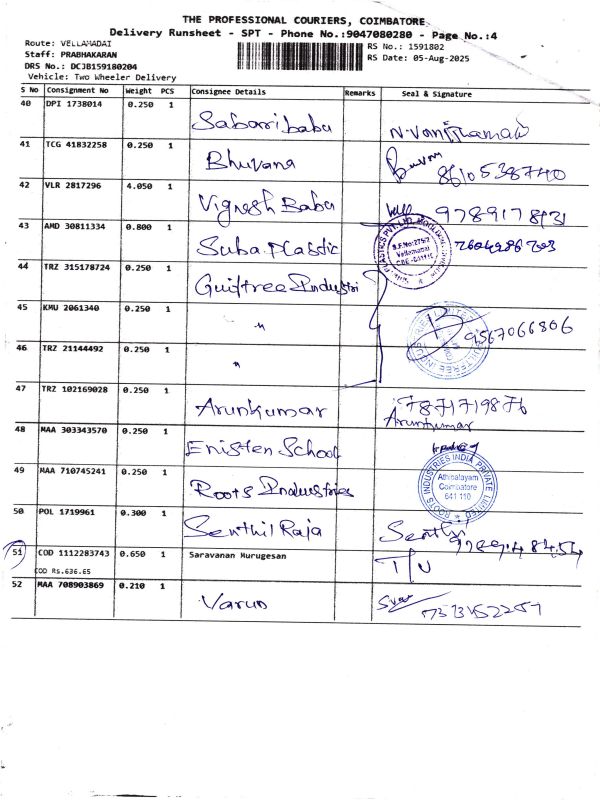 THE PROFESSIONAL COURIERS, COIMBATORE
Delivery Runsheet - SPT - Phone No.:9047080280 - Page No.:4
Route: VELLAMADAI
RS No.: 1591802
Staff: PRABHAKARAN
RS Date: 05-Aug-2025
DRS No.: DCJB159180204
Vehicle: Two Wheeler Delivery
S No Consignment No Weight PCS Consignee Details Remarks Seal & Signature
40 DPI 1738014 0.250 1 Sabari babu
41 TCG 41832258 0.250 1 Bhuvana 8610538740
42 VLR 2817296 4.050 1 Vignesh Babu
43 AMD 30811334 0.800 1 Suba Plastic
S.F.No:275/2
Vellamadai
44 TRZ 315178724 0.250 1 Guiftree Industri
45 KMU 2061340 0.250 1 " 9567066806
46 TRZ 21144492 0.250 1 "
47 TRZ 102169028 0.250 1 Arunkumar 7871719876
Arunkumar
48 MAA 303343570 0.250 1 Enisten School
49 MAA 710745241 0.250 1 Roots Industries
ROOTS INDUSTRIES INDIA PRIVATE LIMITED
Athipalayam
Coimbatore
641 110
50 POL 1719961 0.300 1 Senthil Raja
51 COD 1112283743 0.650 1 Saravanan Murugesan
COD Rs.636.65
52 MAA 708903869 0.210 1 Varun